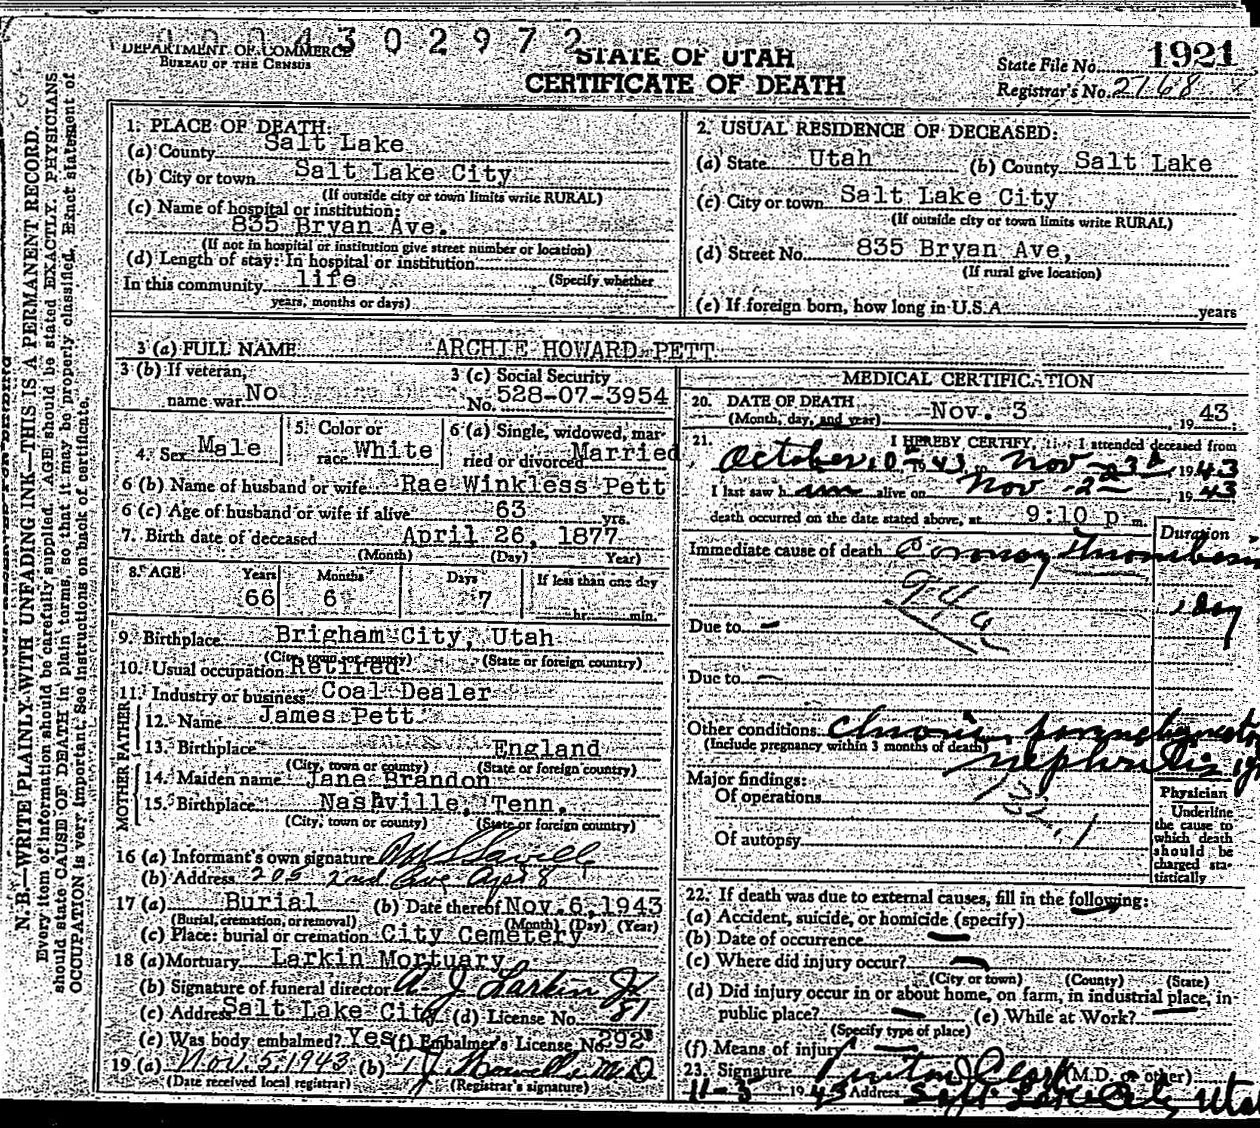 0004302972
DEPARTMENT OF COMMERCE
BUREAU OF THE CENSUS
STATE OF UTAH
CERTIFICATE OF DEATH
State File No. 1921
Registrar's No. 2168
N. B.—WRITE PLAINLY WITH UNFADING INK—THIS IS A PERMANENT RECORD.
Every item of information should be carefully supplied. AGE should be stated EXACTLY. PHYSICIANS
should state CAUSE OF DEATH in plain terms, so that it may be properly classified. Exact statement of
OCCUPATION is very important. See instructions on back of certificate.
1. PLACE OF DEATH:
(a) County Salt Lake
(b) City or town Salt Lake City
(If outside city or town limits write RURAL)
(c) Name of hospital or institution:
835 Bryan Ave.
(If not in hospital or institution give street number or location)
(d) Length of stay: In hospital or institution
(Specify whether
In this community life
years, months or days)
2. USUAL RESIDENCE OF DECEASED:
(a) State Utah (b) County Salt Lake
(c) City or town Salt Lake City
(If outside city or town limits write RURAL)
(d) Street No. 835 Bryan Ave,
(If rural give location)
(e) If foreign born, how long in U.S.A. years
3 (a) FULL NAME ARCHIE HOWARD PETT
3 (b) If veteran,
name war No
3 (c) Social Security
No. 528-07-3954
4. Sex Male
5. Color or
race White
6 (a) Single, widowed, mar-
ried or divorced Married
6 (b) Name of husband or wife Rae Winkless Pett
6 (c) Age of husband or wife if alive 63 yrs.
7. Birth date of deceased April 26, 1877
(Month) (Day) Year)
8. AGE Years Months Days If less than one day
66 6 7 hr. min.
9. Birthplace Brigham City, Utah
(City, town or county) (State or foreign country)
10. Usual occupation Retired
11. Industry or business Coal Dealer
FATHER
12. Name James Pett
13. Birthplace England
(City, town or county) (State or foreign country)
MOTHER
14. Maiden name Jane Brandon
15. Birthplace Nashville, Tenn.
(City, town or county) (State or foreign country)
16 (a) Informant's own signature
(b) Address 205 2nd Ave Apt 8
17 (a) Burial (b) Date thereof Nov. 6, 1943
(Burial, cremation, or removal) (Month) (Day) (Year)
(c) Place: burial or cremation City Cemetery
18 (a) Mortuary Larkin Mortuary
(b) Signature of funeral director A. J. Larkin Jr
(c) Address Salt Lake City (d) License No. 81
(e) Was body embalmed? Yes (f) Embalmer's License No. 292
19 (a) Nov. 5, 1943 (b) M.D.
(Date received local registrar) (Registrar's signature)
MEDICAL CERTIFICATION
20. DATE OF DEATH
(Month, day, and year) Nov. 3, 1943.
21. I HEREBY CERTIFY, that I attended deceased from
October 10th 1943, to Nov 3d, 1943
I last saw him alive on Nov - 2d, 1943
death occurred on the date stated above, at 9:10 p m.
Duration
Immediate cause of death Coronary Thrombosis
94a
1 day
Due to -
Due to -
Other conditions Chronic
(Include pregnancy within 3 months of death)
nephritis
Major findings:
Of operations
132.1
Of autopsy
Physician
Underline
the cause to
which death
should be
charged sta-
tistically
22. If death was due to external causes, fill in the following:
(a) Accident, suicide, or homicide (specify)
(b) Date of occurrence
(c) Where did injury occur?
(City or town) (County) (State)
(d) Did injury occur in or about home, on farm, in industrial place, in
public place? (e) While at Work?
(Specify type of place)
(f) Means of injury
23. Signature (M.D. or other)
11-3 1943 Address Salt Lake City, Utah